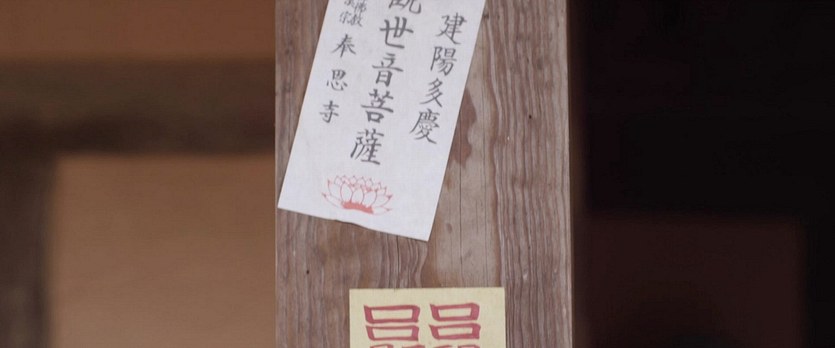 建陽多慶
觀世音菩薩
佛教
宗
奉恩寺